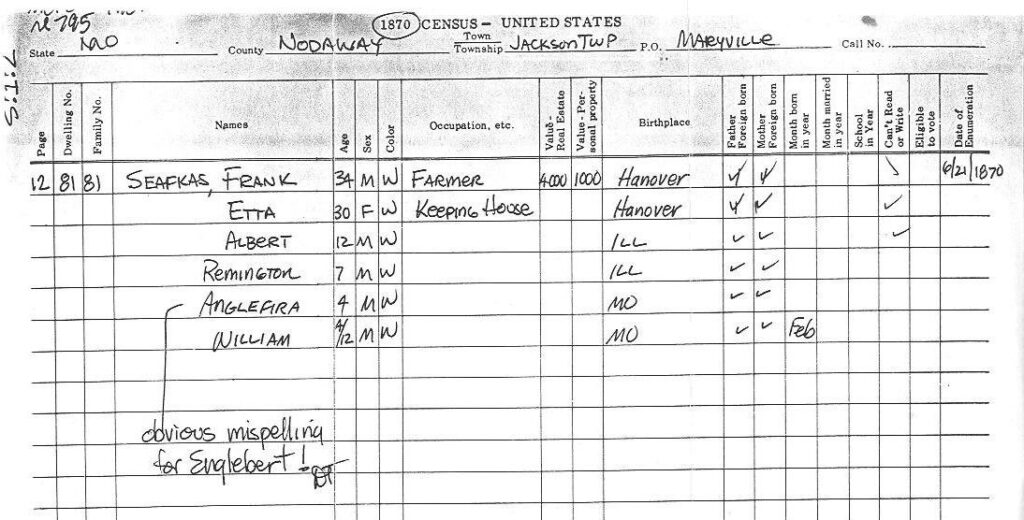 1870 CENSUS - UNITED STATES
State MO County NODAWAY Town Township JACKSON TWP P.O. MARYVILLE Call No.
Page Dwelling No. Family No. Names Age Sex Color Occupation, etc. Value - Real Estate Value - Personal property Birthplace Father Foreign born Mother Foreign born Month born in year Month married in year School in Year Can't Read or Write Eligible to vote Date of Enumeration
12 81 81 SEAFKAS, FRANK 34 M W FARMER 4000 1000 Hanover ✓ ✓ ✓ 6/21/1870
ETTA 30 F W Keeping House Hanover ✓ ✓ ✓
ALBERT 12 M W ILL ✓ ✓ ✓
Remington 7 M W ILL ✓ ✓
ANGLEFIRA 4 M W MO ✓ ✓
WILLIAM 4/12 M W MO ✓ ✓ Feb
obvious mispelling
for Englebert! DT